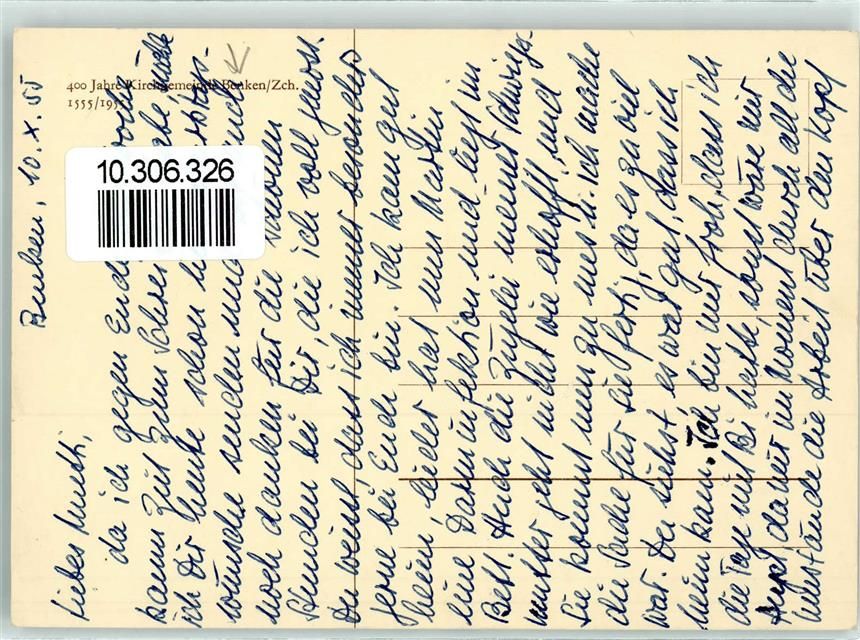 400 Jahre Kirchgemeinde Benken/Zch.
1555/1955
10.306.326
Benken, 10. X. 55
Liebes Muetti,
da ich gegen Ende
kaum Zeit zum Schrei
ich Dir heute schon
wünsche senden und
noch danken für die schönen
Stunden bei Dir, die ich voll genoss.
Du weisst, dass ich immer besonders
gerne bei Euch bin. Ich kam gut
heim, leider hat nun Martin
eine Darminfektion und liegt im
Bett. Auch die Züglei meiner Schwieger-
mutter geht nicht wie erhofft, und
sie kommt nun zu uns. Ich mache
die Sache für sie fertig, da es zu viel
war. Du siehst es war gut, dass ich
heim kam. Ich bin nur froh, dass ich
die Tage mit Bei hatte, sonst wäre mir
angst da mir im Moment durch all die
Umstände die Arbeit über den Kopf